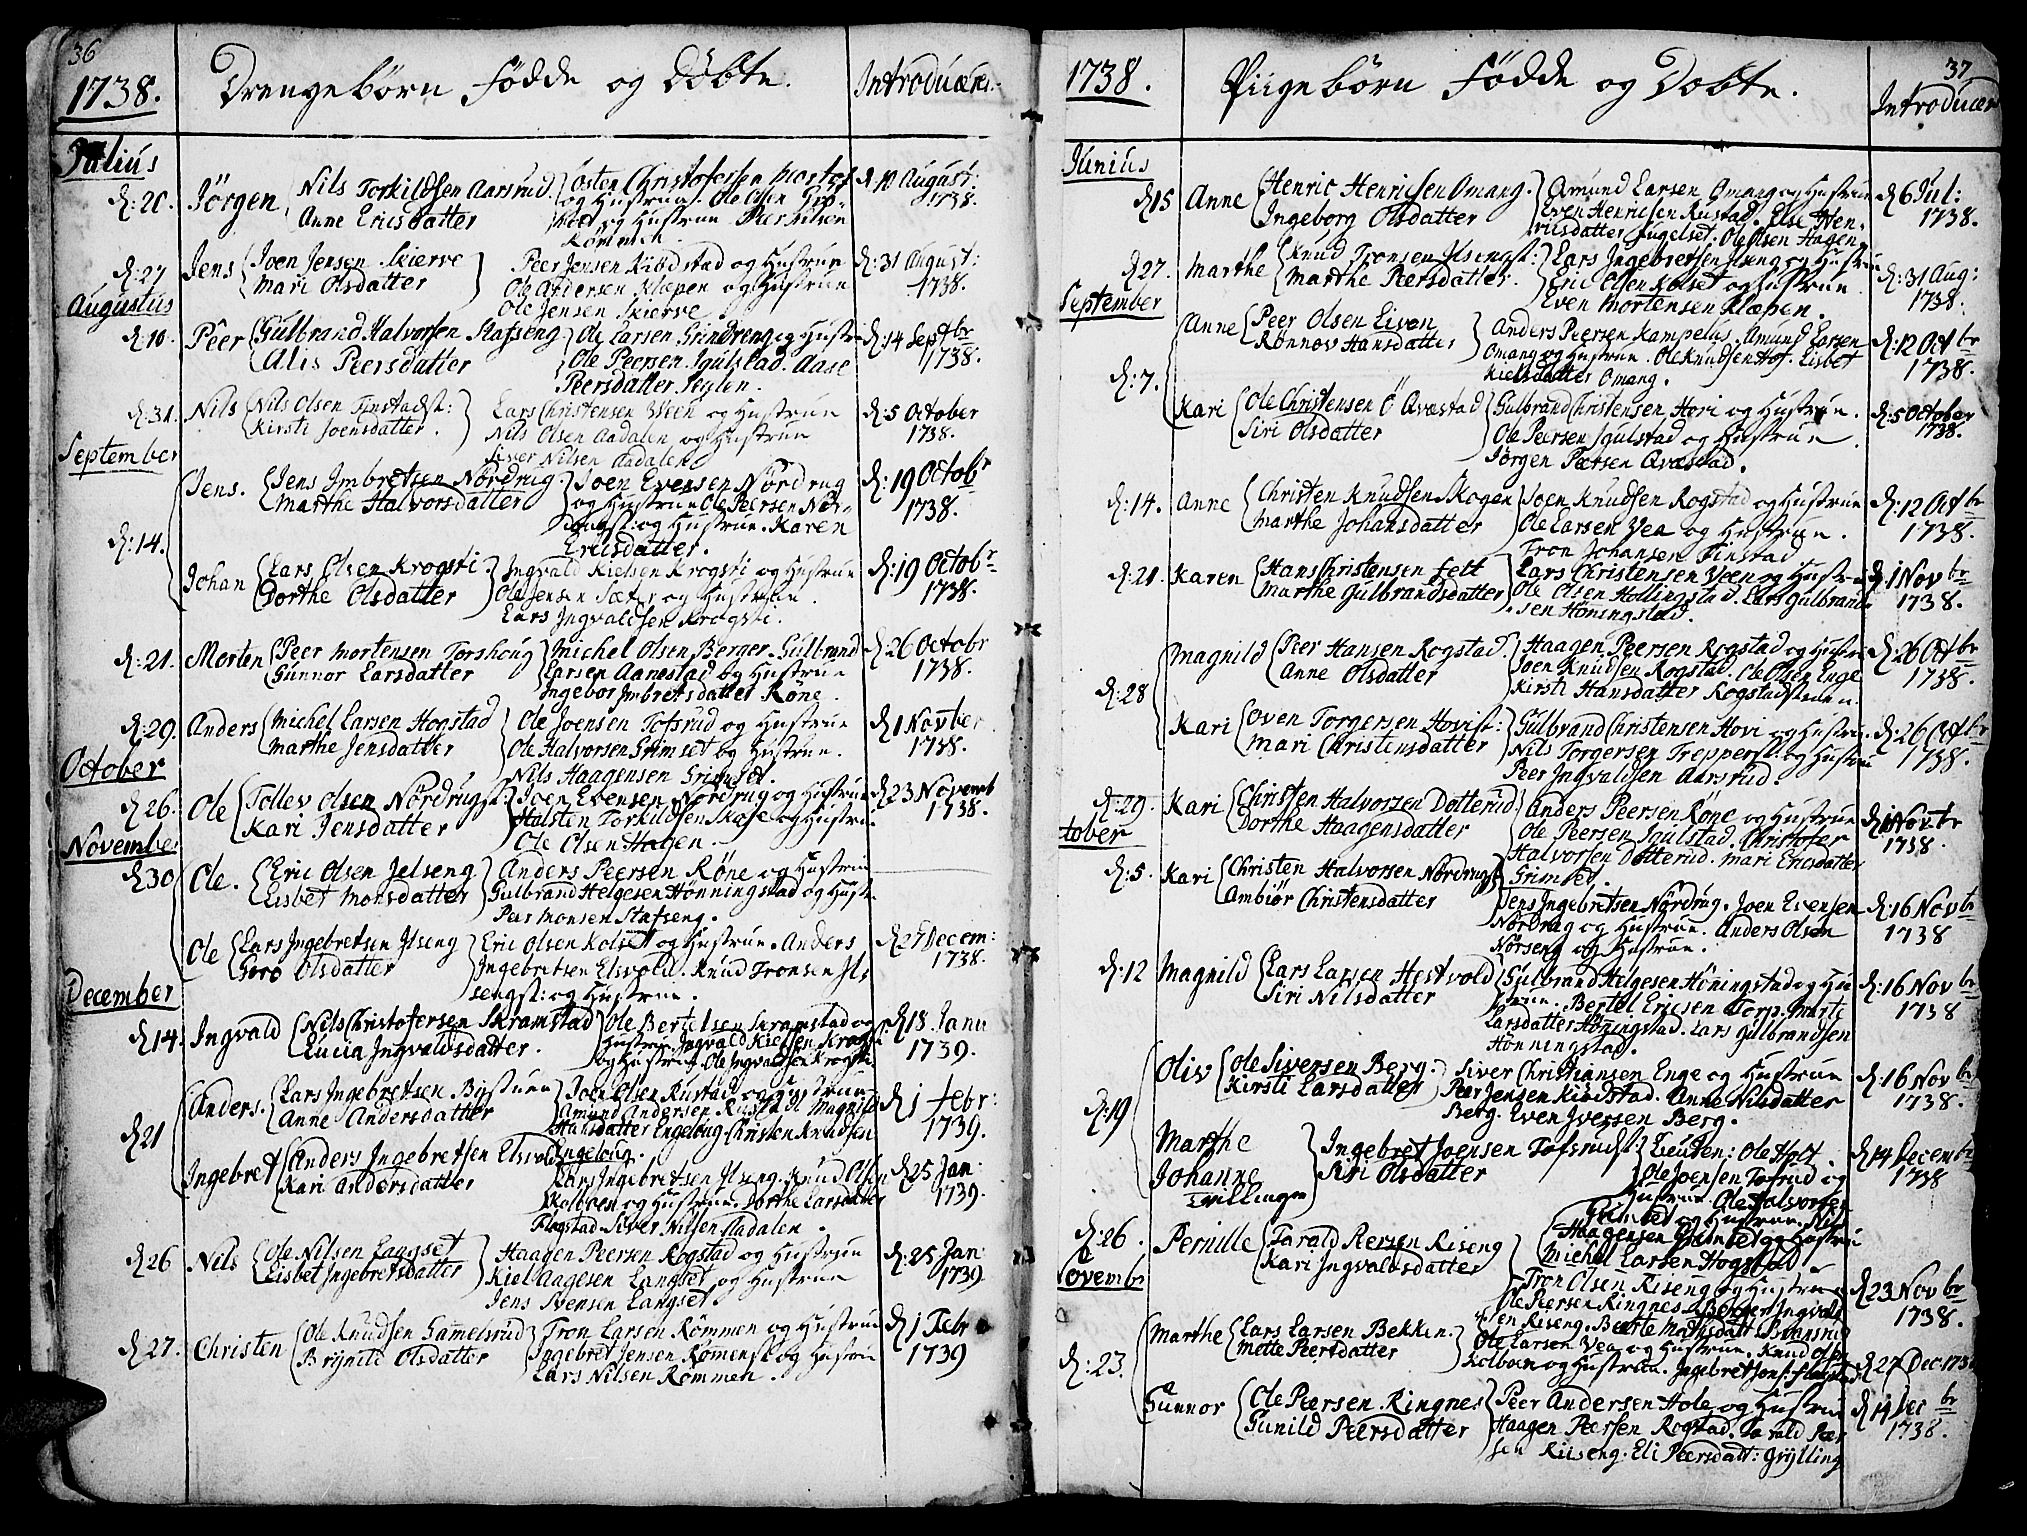 36
1738. Drengebørn Fødde og Døbte. Introducer.
Julius
d: 20. Jörgen Nils Torkildsen Aarsrud Østen Christofersen d: 10 August:
Anne Ericsdatter og Hustrue. Ole Olsen 1738.
og Hustrue
Rommen.
d: 27 Jens Joen Jensen Skierve Peer Jensen Kiödstad og Hustrue d: 31 August:
Mari Olsdatter Ole Andersen Klæpen og Hustrue 1738.
Augustus Ole Jensen Skierve.
d: 10. Peer Gulbrand Halvorsen Stafseng Ole Larsen Grindreng og Hustr: d: 14 Septbr
Alis Peersdatter Ole Peersen Jgulstad. Aase 1738.
Peersdatter Seglen.
d: 31. Nils Nils Olsen Finstadst: Lars Christensen Veen og Hustrue d: 5 October
Kirsti Joensdatter. Nils Olsen Aadalen og Hustrue 1738.
September Siver Nilsen Aadalen
Jens. Jens Jmbretsen Nördrug Joen Evensen Nördrug d: 19 Octobr
Marthe Halvorsdatter og Hustrue Ole Peersen Nör- 1738.
drugst: og Hustrue. Karen
d: 14. Ericsdatter.
Johan Lars Olsen Krogsti Jngvald Kielsen Krogsti og Hustrue d: 19 Octobr
Dorthe Olsdatter Ole Jensen Sæter og Hustrue. 1738.
Lars Jngvaldsen Krogsti.
d: 21. Morten Peer Mortensen Torshoug Michel Olsen Berger. Gulbrand d: 26 Octobr
Gunnor Larsdatter Larsen Aanestad og Hustrue 1738.
Ingebor Jmbretsdatter Röne.
d: 29. Anders Michel Larsen Hogstad Ole Joensen Tofsrud og Hustrue d 1 Novber
Marthe Jensdatter Ole Halvorsen Grimset og Hustrue. 1738.
October Nils Haagensen Grimset.
d: 26. Ole Tollev Olsen Nördrugst: Joen Evensen Nördrug og Hustrue d 23 Novemb
Kari Jensdatter Halsten Torkildsen Skæse og Hustru. 1738.
November Ole Olsen Hagen.
d 30 Ole. Eric Olsen Jelseng Anders Peersen Röne og Hustrue
Lisbet Monsdatter Gulbrand Helgesen Hönningstad og Hustr:
Peer Monsen Stafseng.
Ole Lars Jngebretsen Jlseng Eric Olsen Kolset og Hustrue. Anders d 27 Decem:
Goro Olsdatter Jngebretsen Elsvold. Knud Tronsen Jl- 1738.
December sengst: og Hustrue.
d 14. Ingvald Nils Christofersen Skramstad Ole Bertelsen Skramstad og d 18 Janu
Lucia Jngvaldsdatter. Hustrue. Jngvald Kielsen Krogsti 1739.
og Hustrue. Ole Jngvaldsen Krogsti.
Anders. Lars Jngebretsen Bystuen Joen Olsen Rustad og Hustrue d 1 Febr:
Anne Andersdatter Amund Andersen Rustad. Magnild 1739.
d 21 Hansdatter Engeloug. Christen Knudsen
Engeloug.
Ingebret Anders Jngebretsen Elsvold Lars Jngebretsen Jlseng. Knud Olsen d 25 Jan:
Kari Andersdatter Kolboen og Hustrue. Dorthe Larsdatter 1739.
Flagstad. Siver Nilsen Aadalen.
d 26 Nils Ole Nilsen Langset Haagen Peersen Rogstad og Hustrue d: 25 Jan:
Lisbet Jngebretsdatter Kiel Aagesen Langset og Hustrue 1739.
Jens Svensen Langset.
d: 27. Christen Ole Knudsen Gammelsrud Tron Larsen Rommen og Hustrue d 1 Febr
Brynild Olsdatter Jngebret Jensen Rommenst: og Hustrue 1739
Lars Nilsen Rommen.
37
1738. Piigebørn Fødde og Dobte. Introducer
Junius
d 15 Anne Henric Henricsen Omang. Amund Larsen Omang og Hustrue d 6 Jul:
Ingeborg Olsdatter Even Henricsen Rustad. Else Hen- 1738.
ricsdatter Fugelset: Ole Olsen Hagen.
d 27. Marthe Knud Tronsen Jlsengst: Lars Ingebretsen Jlseng og Hustrue d: 31 Aug:
Marthe Peersdatter. Eric Olsen Kolset og Hustrue 1738.
September Even Mortensen Klæpen.
Anne Peer Olsen Eivon Anders Peersen Kampelus. Amund Larsen d: 12 Octbr
Rönnov Hansdatter Omang og Hustrue. Ole Knudsen Hof. Lisbet 1738.
d: 7. Kielsdatter Omang.
Kari Ole Christensen Ö Qvæstad Gulbrand Christensen Hovi og Hustrue. d: 5 October
Siri Olsdatter Ole Peersen Jgulstad og Hustrue. 1738.
Jörgen Peersen Qvæstad.
d: 14. Anne Christen Knudsen Skogen Joen Knudsen Rogstad og Hustrue d: 12 Octbr
Marthe Johansdatter Ole Larsen Vea og Hustrue. 1738.
Tron Johansen Finstad
d: 21. Karen Hans Christensen Felt Lars Christensen Veen og Hustru d 1 Novbr
Marthe Gulbrandsdatter Ole Olsen Hellingstad. Lars Gulbrand- 1738.
sen Höningstad.
Magnild Peer Hansen Rogstad. Haagen Peersen Rogstad og Hustru d 26 Octbr
Anne Olsdatter Joen Knudsen Rogstad. Ole Olsen Enge 1738.
d: 28 Kirsti Hansdatter Rogstadstuen.
Kari Oven Torgersen Hovist: Gulbrand Christensen Hovi og Hustrue. d: 26 Octbr
Mari Christensdatter Nils Torgersen Trepperst: og Hustrue 1738.
Peer Jngvaldsen Aarsrud.
d: 29. Kari Christen Halvorsen Dotterud Anders Peersen Röne og Hustrue d 1 Novbr
Dorthe Haagensdatter Ole Peersen Jgulstad. Christofer 1738.
tober Halvorsen Dotterud. Mari Ericsdatter
Grimset.
d: 5. Kari Christen Halvorsen Nordrugst: Jens Jngebretsen Nördrug. Joen Evensen d: 16 Novbr
Ambiör Christensdatter Nördrug og Hustrue. Anders Olsen 1738
Nörseng og Hustrue.
d: 12 Magnild Lars Larsen Hestvold Gulbrand Helgesen Höningstad og Hu- d: 16 Novbr
Siri Nilsdatter strue. Bertel Ericsen Torp. Marte 1738
Larsdatter Höningstad. Lars Gulbrandsen
Hönningstad.
Oliv Ole Siversen Berg. Siver Christiansen Enge og Hustrue d: 16 Novbr
Kirsti Larsdatter Peer Jensen Kiödstad. Anne Nilsdatter 1738.
d: 19 Berg. Even Jversen Berg.
Marthe Ingebret Joensen Tofsrudst: Lieuten: Ole Holt. d 14 Decembr
Johanne Siri Olsdatter Ole Joensen Tofsrud og 1738
Tvillinger Hustrue. Ole Halvorsen
Grimset og Hustrue. Nils
Haagensen Grimset og Hustrue
Michel Larsen Hogstad
d: 26. Pernille Farald Peersen Kiseng Tron Olsen Kiseng og Hustrue d 23 Novbr
Kari Jngvaldsdatter Ole Peersen Ringnes. Jngvald 1738.
ovembr sen Kiseng. Beerte
Marthe Lars Larsen Bekken. Ole Larsen Vea og Hustrue. Knud Olsen d 27 Dec 1738
Mette Peersdatter Kolboen og Hustrue. Jngebret
d: 23.
Gunnor Ole Peersen Ringnes Peer Andersen Hole og Hustrue d 14 Decbr
Gunild Peersdatter Haagen Peersen Rogstad. Farald Peer- 1738.
sen Kiseng. Eli Peersdatt: Grylling